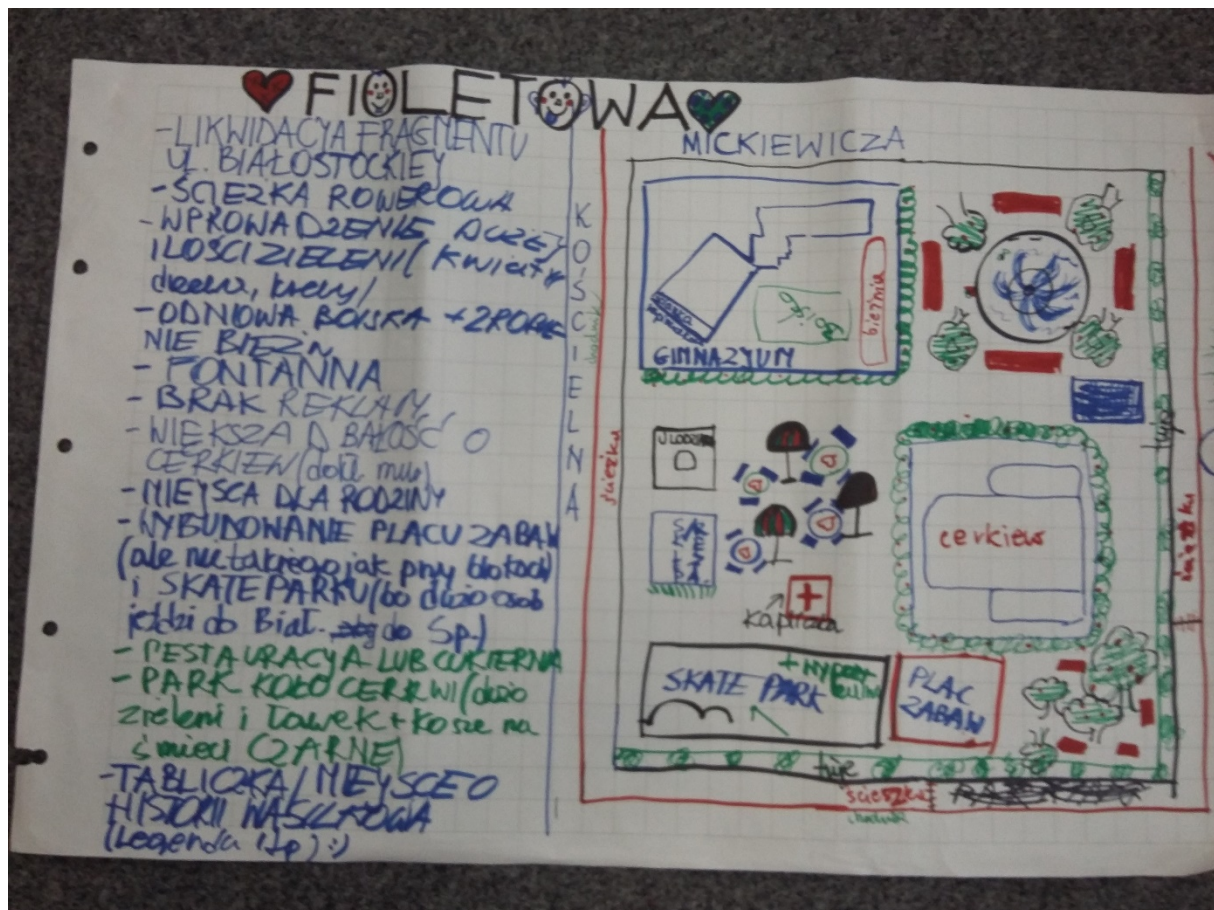 FIOLETOWA
-LIKWIDACYA FRAGMENTU
UL. BIAŁOSTOCKIEY
-ŚCIEZKA ROWEROWA
-WPROWADZENIE DUŻEJ
ILOŚCI ZIELENI/ kwiaty
drzewa, krzewy/
-ODNOWA BOISKA +ZROBIE
NIE BIEŻNI
- FONTANNA
- BRAK REKLAM
-WIĘKSZA DBAŁOŚĆ O
CERKIEW
-MIEYSCA DLA RODZINY
-WYBUDOWANIE PLACU ZABAW
(ale nie takiego jak przy blokach)
i SKATE PARKU (bo dużo osób
jeździ do Biał. do Sp.)
-RESTAURACYA LUB CUKIERNA
- PARK KOŁO CERKWI (dużo
zieleni i ławek + kosze na
śmieci CZARNE)
-TABLICZKA/MIEYSCE O
HISTORII WASILKOWA
(Legenda itp) :)
KOŚCIELNA
chodnik
ścieżka
MICKIEWICZA
boisko
bieżnia
GIMNAZYUM
cerkiew
kapliczka
SKATE PARK
PLAC
ZABAW
tuje
tuje
ścieżka
ścieszka
chodnik